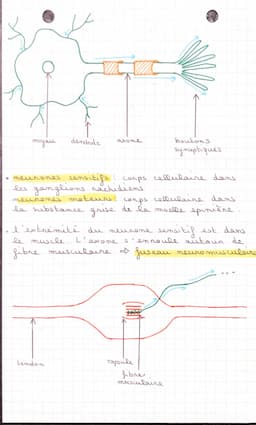 noyau dendrite axone boutons
synaptiques
• neurones sensitifs : corps cellulaire dans
les ganglions rachidiens
neurones moteurs : corps cellulaire dans
la substance grise de la moelle épinière.
• L'extrémité du neurone sensitif est dans
le muscle. L'axone s'enroule autour de
fibre musculaire ⇒ fuseau neuromusculaire
...
tendon capsule
fibre
musculaire